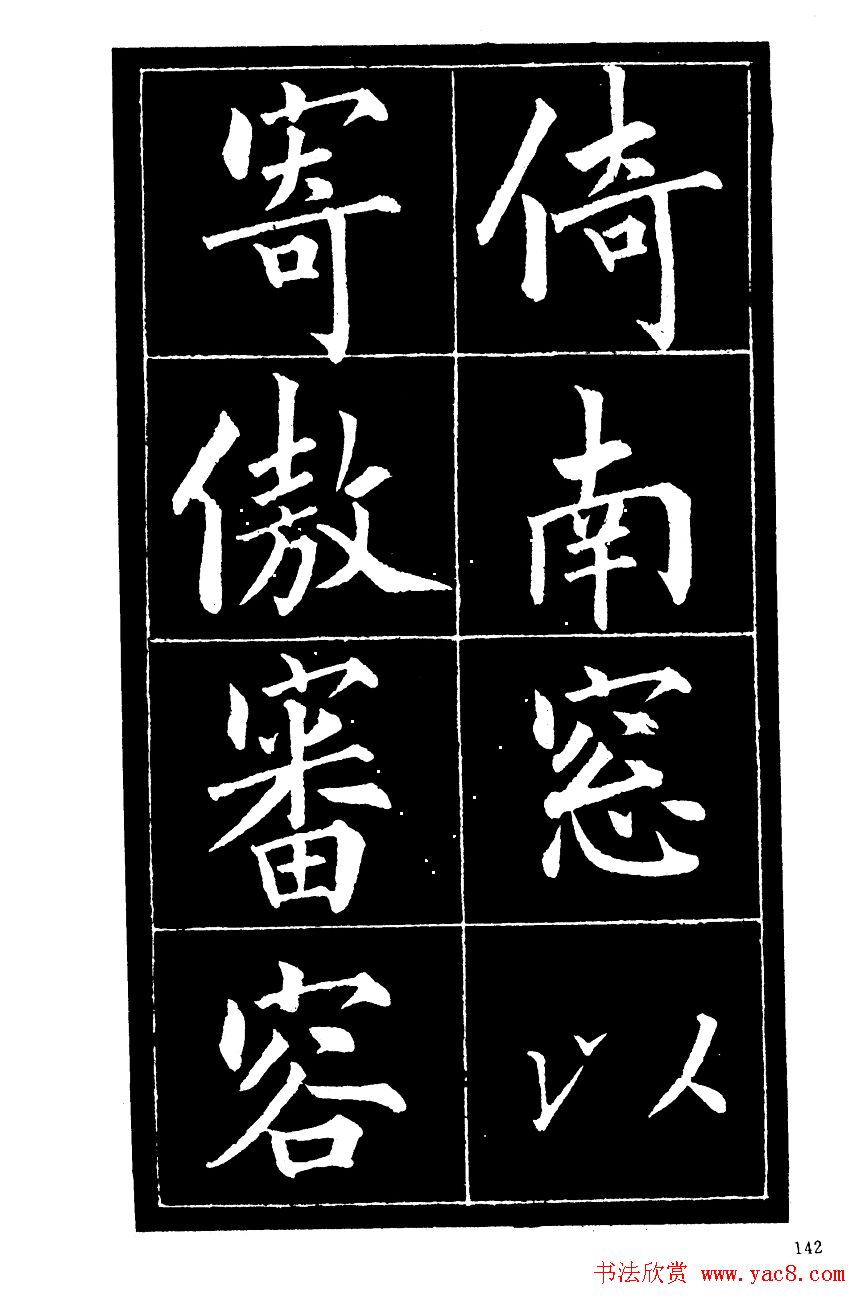 倚南窓以
寄傲審容
142
书法欣赏 www.yac8.com